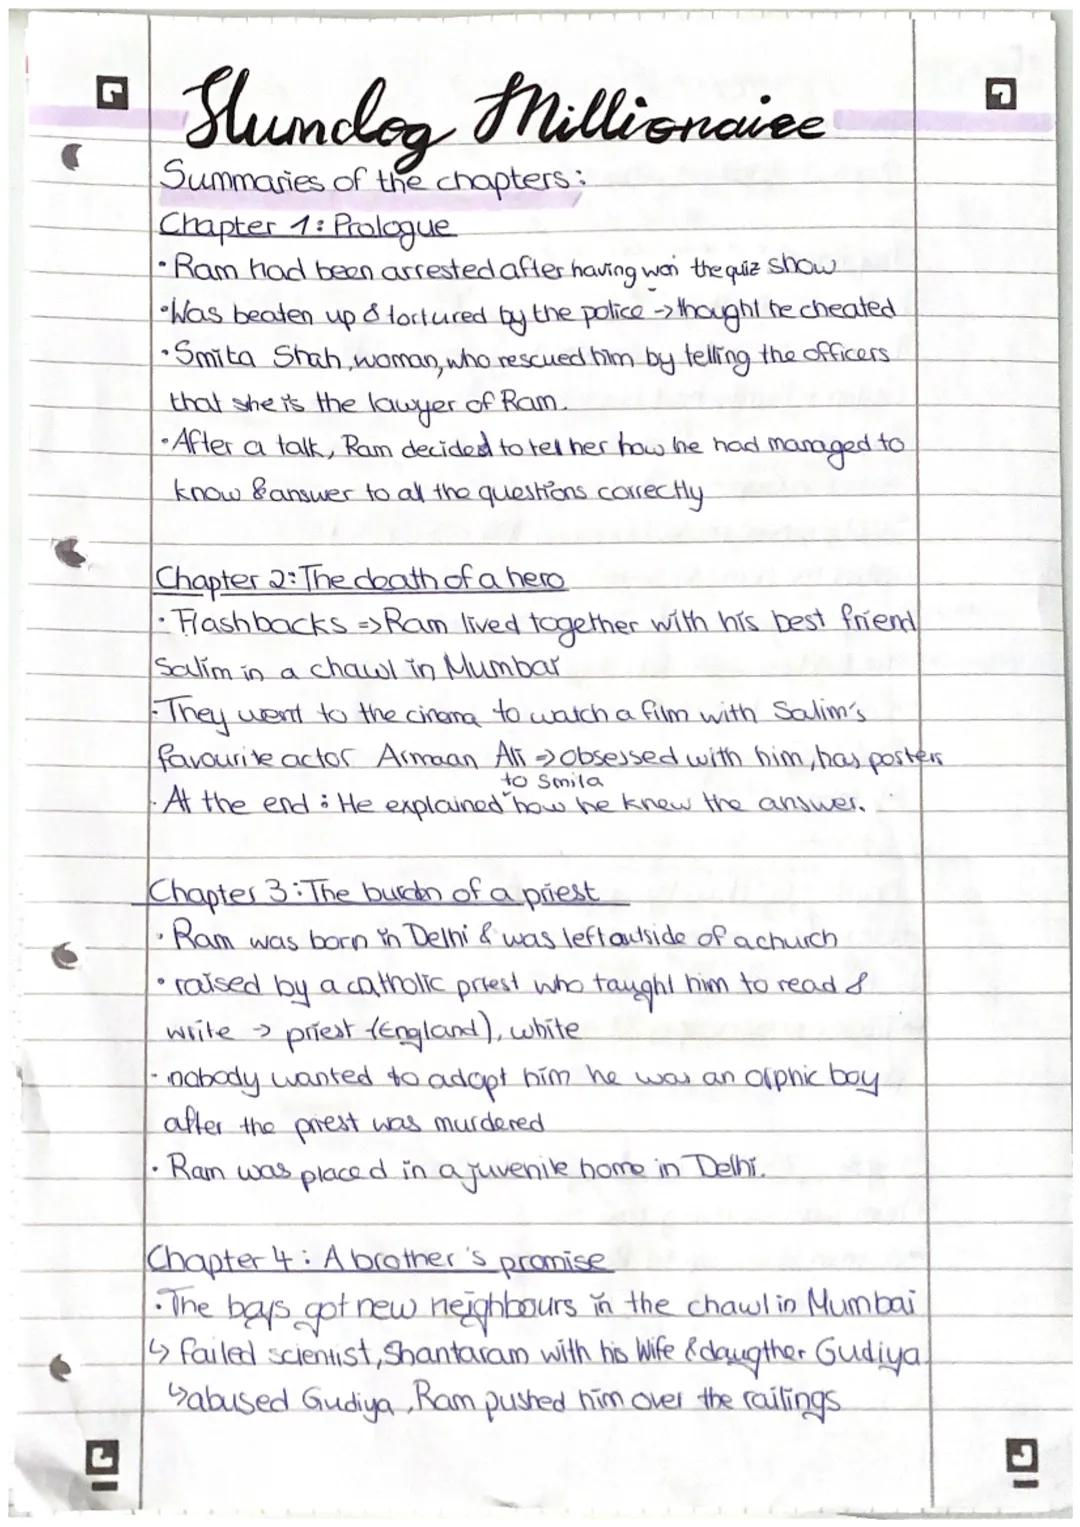 Slumdog Millionaire
Summaries of the chapters:
Chapter 1: Prologue
• Ram had been arrested after having won the quiz show
• Was beaten up & tortured by the police -> thought he cheated
• Smita Shah, woman, who rescued him by telling the officers
that she is the lawyer of Ram.
• After a talk, Ram decided to tell her how he had managed to
know & answer to all the questions correctly
Chapter 2: The death of a hero
• Flashbacks => Ram lived together with his best friend
Salim in a chawl in Mumbai
- They went to the cinema to watch a film with Salim's
favourite actor Armaan Ali => obsessed with him, has posters
to Smila
• At the end : He explained how he knew the answer.
Chapter 3: The burdn of a priest
• Ram was born in Delhi & was left outside of a church
• raised by a catholic priest who taught him to read &
write -> priest (England), white
- nobody wanted to adopt him he was an orphic boy
after the priest was murdered
• Ram was placed in a juvenile home in Delhi.
Chapter 4: A brother's promise
• The boys got new neighbours in the chawl in Mumbai
↳ failed scientist, Shantaram with his Wife & daugther Gudiya.
↳ abused Gudiya, Ram pushed him over the railings